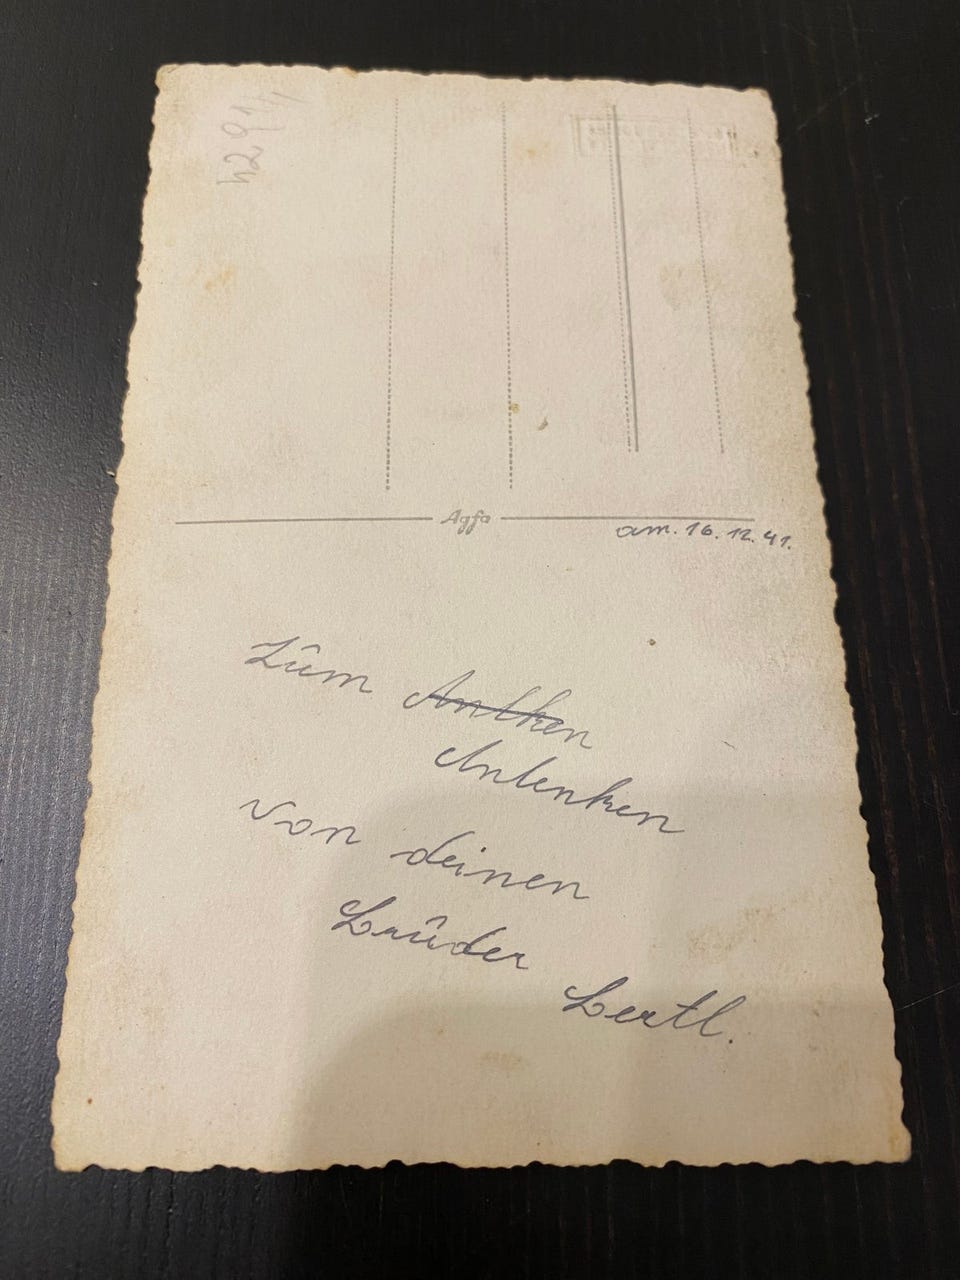 Agfa
am. 16. 12. 41.
Zum Antken
Antenken
von deinen
Bruder Bertl.